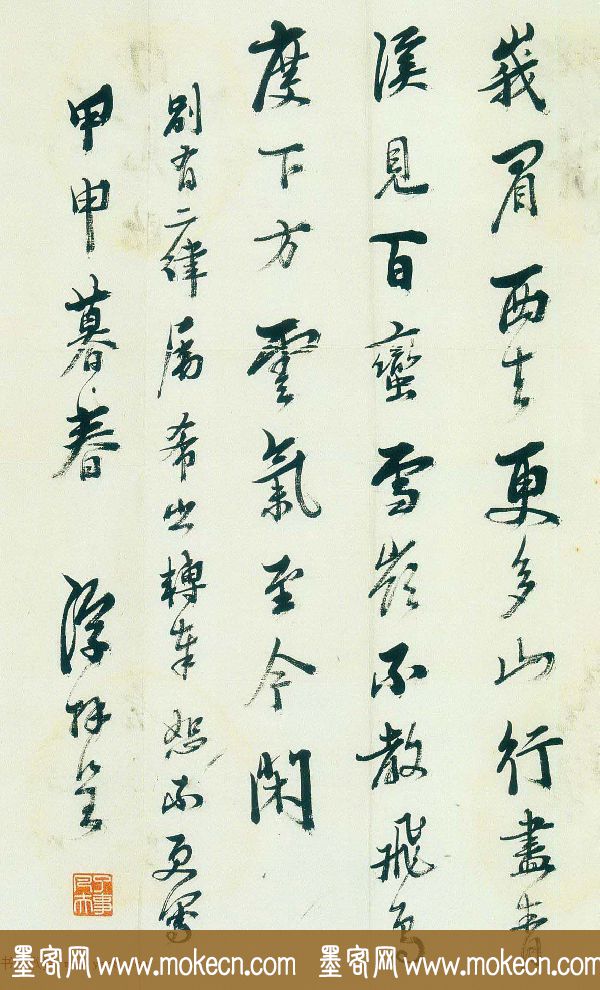 峩眉西去更多山行盡青
溪見百蠻雪嶺不教飛鳥
度下方雲氣至今閑
別有二律屬希轉奉恕不更寫
甲申暮春 浮拜呈
墨客网 www.mokecn.com 墨客网 www.mokecn.com